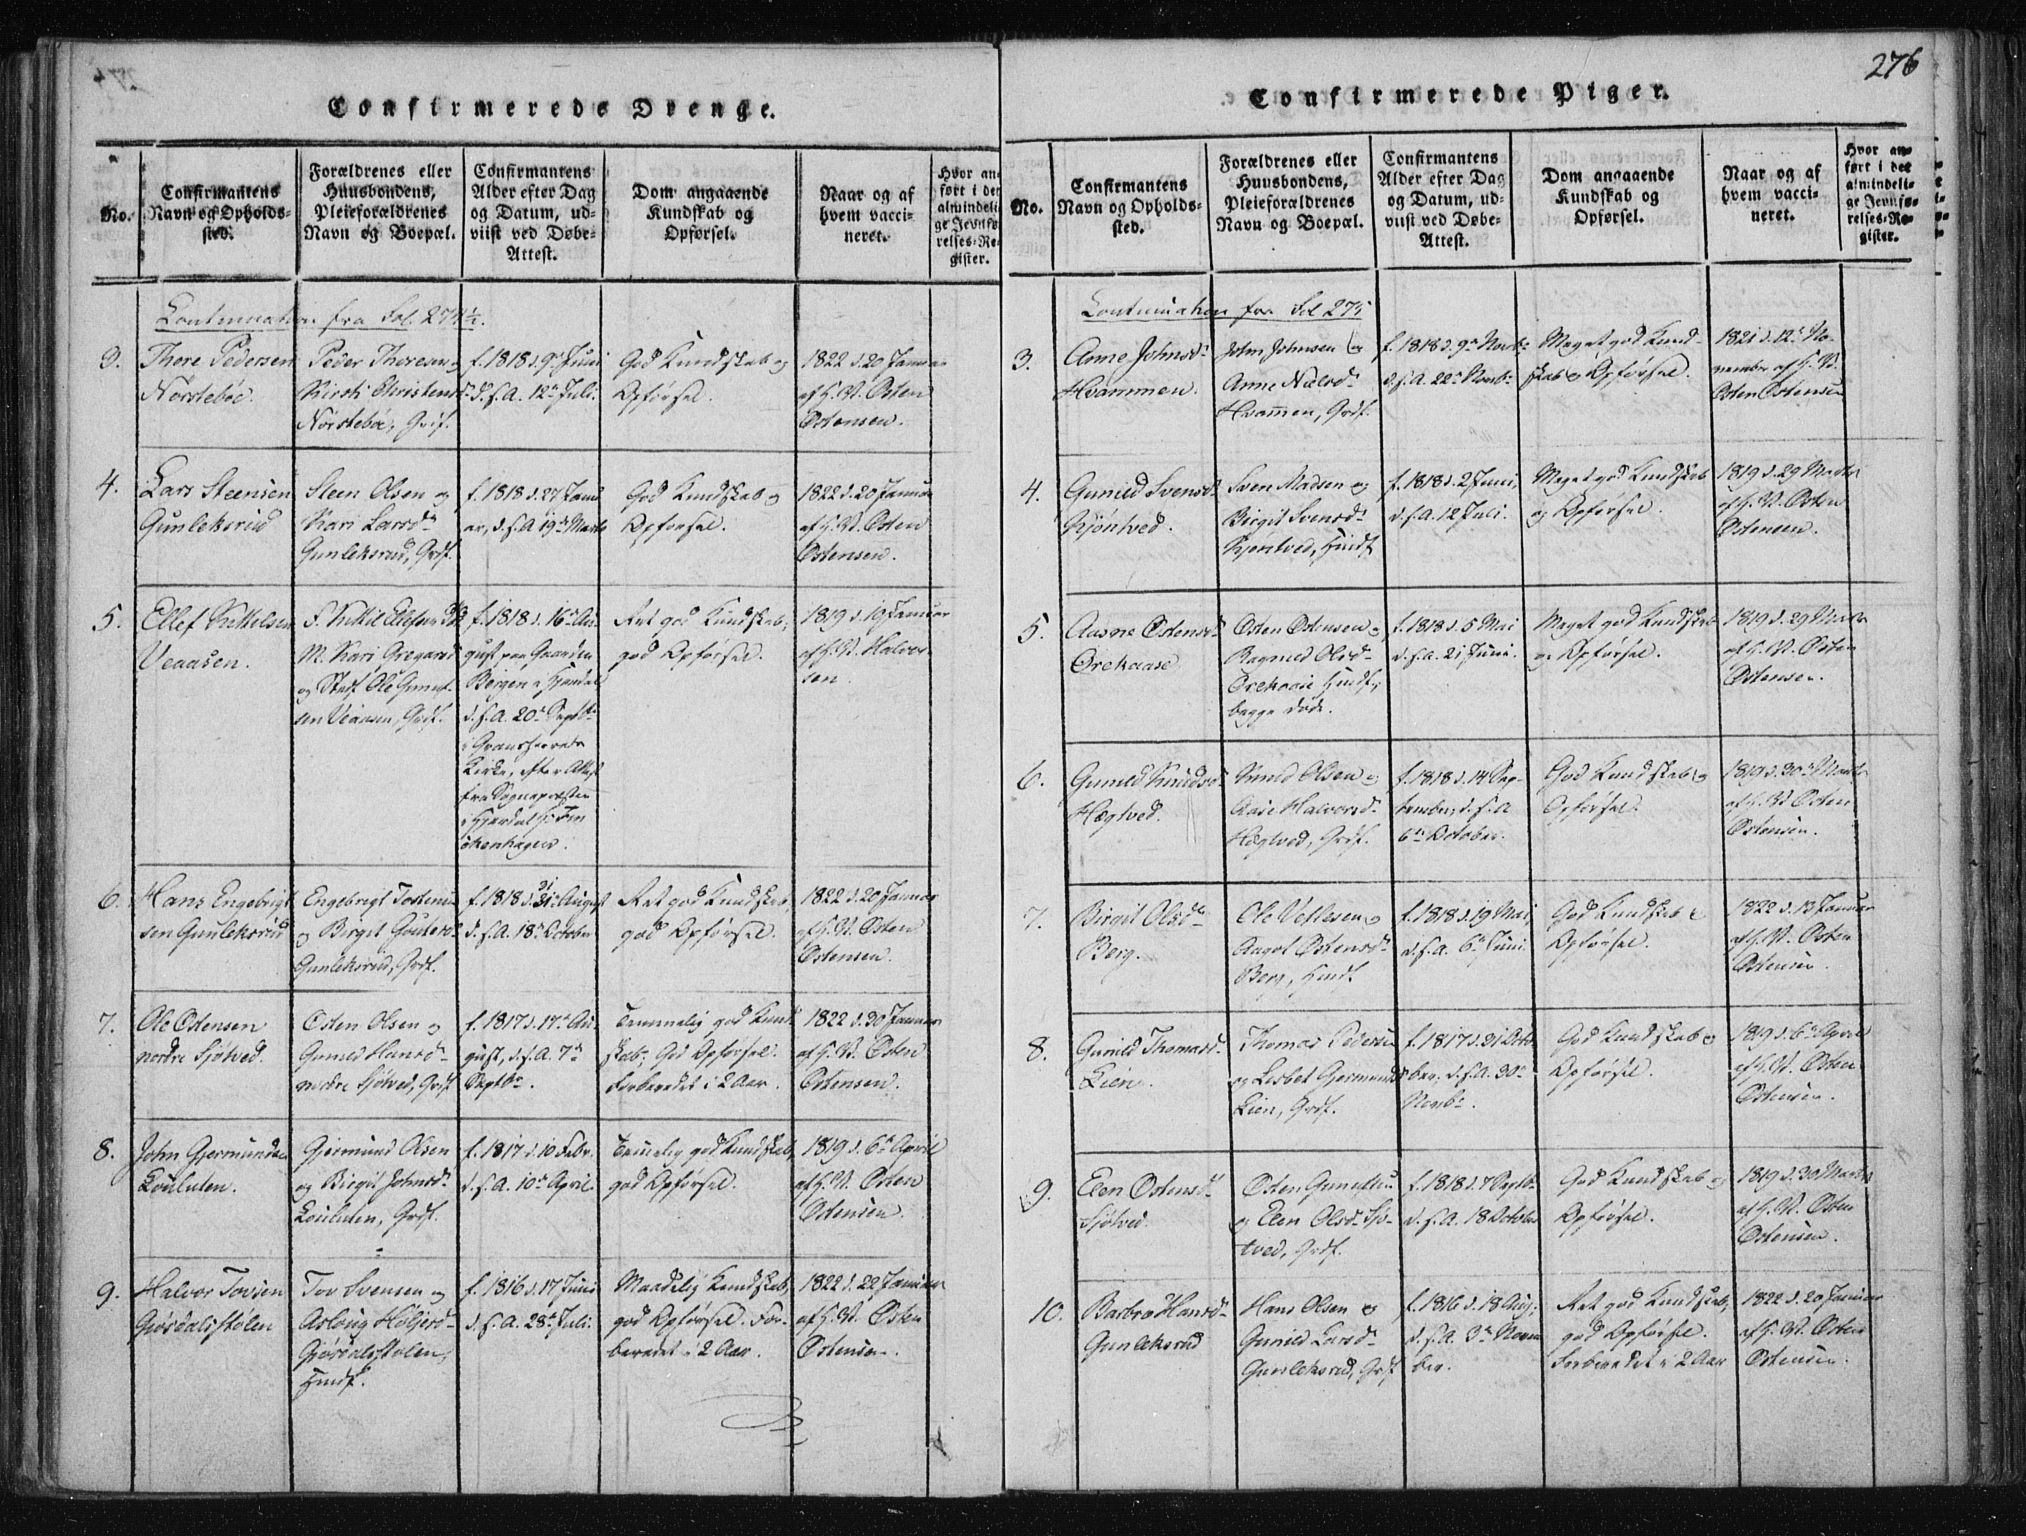 Confirmerede Drenge.
No.
Confirmantens
Navn og Opholds-
sted.
Forældrenes eller
Huusbondens,
Pleieforældrenes
Navn og Boepæl.
Confirmantens
Alder efter Dag
og Datum, ud-
viist ved Døbe-
Attest.
Dom angaaende
Kundskab og
Opførsel.
Naar og af
hvem vacci-
neret.
Hvor an-
ført i det
almindeli-
ge Jevnfø-
relses-Re-
gister.
Continuation fra Fol. 274½.
3.
Thore Pedersen
Nörstebøe.
Peder Thoresen og
Kirsti Christensd.
Nörstebøe, Grdf.
f. 1818 d. 9de Juni
d. s. A. 12te Juli.
God Kundskab og
Opførsel.
1822 d. 20 Januar
af G. M. Østen
Østensen.
4.
Lars Steensen
Gunleksrud
Steen Olsen og
Kari Larsd.
Gunleksrud, Grdf.
f. 1818 d. 27 Janu-
ar, d. s. A. 19de Marts
God Kundskab og
Opførsel.
1822 d. 20 Januar
af G. M. Østen
Østensen.
5.
Ellef Kittelsen
Veaasen.
F. Kittil Ellefsen
M. Kari Gregarsd
og Stedf. Ole Gunuf-
sen Veaasen, Grdf.
f. 1818 d. 16de Au-
gust paa Gaarden
Bergen i Hjerdal
d. s. A. 20de Septbr.
i Gransherreds
Kirke, efter Attest
fra Sognepresten
i Hjerdal
Ret god Kundskab,
god Opførsel.
1819 d. 10 Januar
af G. M. Halvor-
sen.
6.
Hans Engebrigt-
sen Gunleksrud
Engebrigt Tostensen
og Birgit Gouterd.
Gunleksrud, Grdf.
f. 1818 d. 31te August
d. s. A. 18de October
Ret god Kundskab,
god Opførsel.
1822 d. 20 Januar
af G. M. Østen
Østensen.
7.
Ole Østensen
nordre Sjötved.
Østen Olsen og
Guned Hansd.
nordre Sjötved, Grdf.
f. 1817 d. 17de Au-
gust, d. s. A. 7de
Septbr.
Temmelig god Kund-
skab, God Opførsel.
Forberedet i 2 Aar.
1822 d. 30 Januar
af G. M. Østen
Østensen.
8.
John Gjermundsen
Louluten.
Gjermund Olsen
og Birgit Johnsd.
Louluten, Grdf.
f. 1817 d. 10 Febr.
d. s. A. 10de April.
Temelig god Kundskab,
god Opførsel.
1819 d. 6te April
af G. M. Østen
Østensen
9.
Halvor Tovsen
Gjösdalsstölen
Tov Svensen og
Aslaug Höljersd.
Gjösdalsstölen,
Huusf.
f. 1816 d. 17 Juni
d. s. A. 28de Juli.
Maadelig Kundskab,
god Opførsel. For-
beredet i 2 Aar.
1822 d. 22 Januar
af G. M. Østen
Østensen.
276
Confirmerede Piger.
No.
Confirmantens
Navn og Opholds-
sted.
Forældrenes eller
Huusbondens,
Pleieforældrenes
Navn og Boepæl.
Confirmantens
Alder efter Dag
og Datum, ud-
viist ved Døbe-
Attest.
Dom angaaende
Kundskab og
Opførsel.
Naar og af
hvem vacci-
neret.
Hvor an-
ført i det
almindeli-
ge Jevnfø-
relses-Re-
gister.
Continuation fra Fol 275
3.
Anne Johnsd.
Hvammen.
John Johnsen og
Anne Nielsd.
Hvammen, Grdf.
f. 1818 d. 9de Novbr.
d. s. A. 22de Novbr.
Meget god Kund-
skab og Opførsel.
1821 d. 12te No-
vember af G. M.
Østen Østensen
4.
Gunild Svensd.
Kjöntved.
Sven Madsen og
Birgit Svensd.
Kjöntved, Huusf.
f. 1818 d. 2 Juni,
d. s. A. 12 Juli.
Meget god Kundskab
og Opførsel.
1819 d. 29 Marts
af G. M. Østen
Østensen.
5.
Aasne Østensd.
Orekaase
Østen Østensen og
Ragned Olsd.
Orekaase Huusf.,
begge døde.
f. 1818 d. 5 Mai
d. s. A. 21 Juni.
Meget god Kundskab
og Opførsel.
1819 d. 29 Marts
af G. M. Østen
Østensen.
6.
Guned Knudsd.
Hægtved.
Knud Olsen og
Aase Halvorsd.
Hægtved, Grdf.
f. 1818 d. 14 Sep-
tember, d. s. A
6te October.
God Kundskab og
Opførsel.
1819 d. 30te Marts
af G. M Østen
Østensen.
7.
Birgit Olsd.
Berg.
Ole Vetlesen og
Aagot Østensd.
Berg, Huusf.
f. 1818 d. 19 Mai,
d. s. A. 6te Juni.
God Kundskab og
Opførsel.
1822 d. 13 Januar
af G. M. Østen
Østensen.
8.
Gunild Thomasd.
Lien.
Thomas Pedersen
og Lisbet Gjermunds
Lien, Grdf.
f. 1817 d. 21 Octo-
ber, d. s. A. 30te
Novbr.
God Kundskab og
Opførsel.
1819 d. 6te April
af G. M. Østen
Østensen.
9.
Elen Østensd.
Sjötved.
Østen Gunulsen
og Elen Olsd. Sjö-
tved, Grdf.
f. 1818 d. 7 Septb.
d. s. A. 18 October
God Kundskab og
Opførsel.
1819 d. 30 Marts
af G. M. Østen
Østensen.
10.
Barbro Hansd.
Gunleksrud
Hans Olsen og
Gunild Larsd.
Gunleksrud, Grdf.
f. 1816 d. 18 Aug.,
d. s. A. 3de Novem
ber.
Ret god Kundskab,
god Opførsel.
Forberedet i 2 Aar
1822 d. 20 Januar
af G. M. Østen
Østensen.